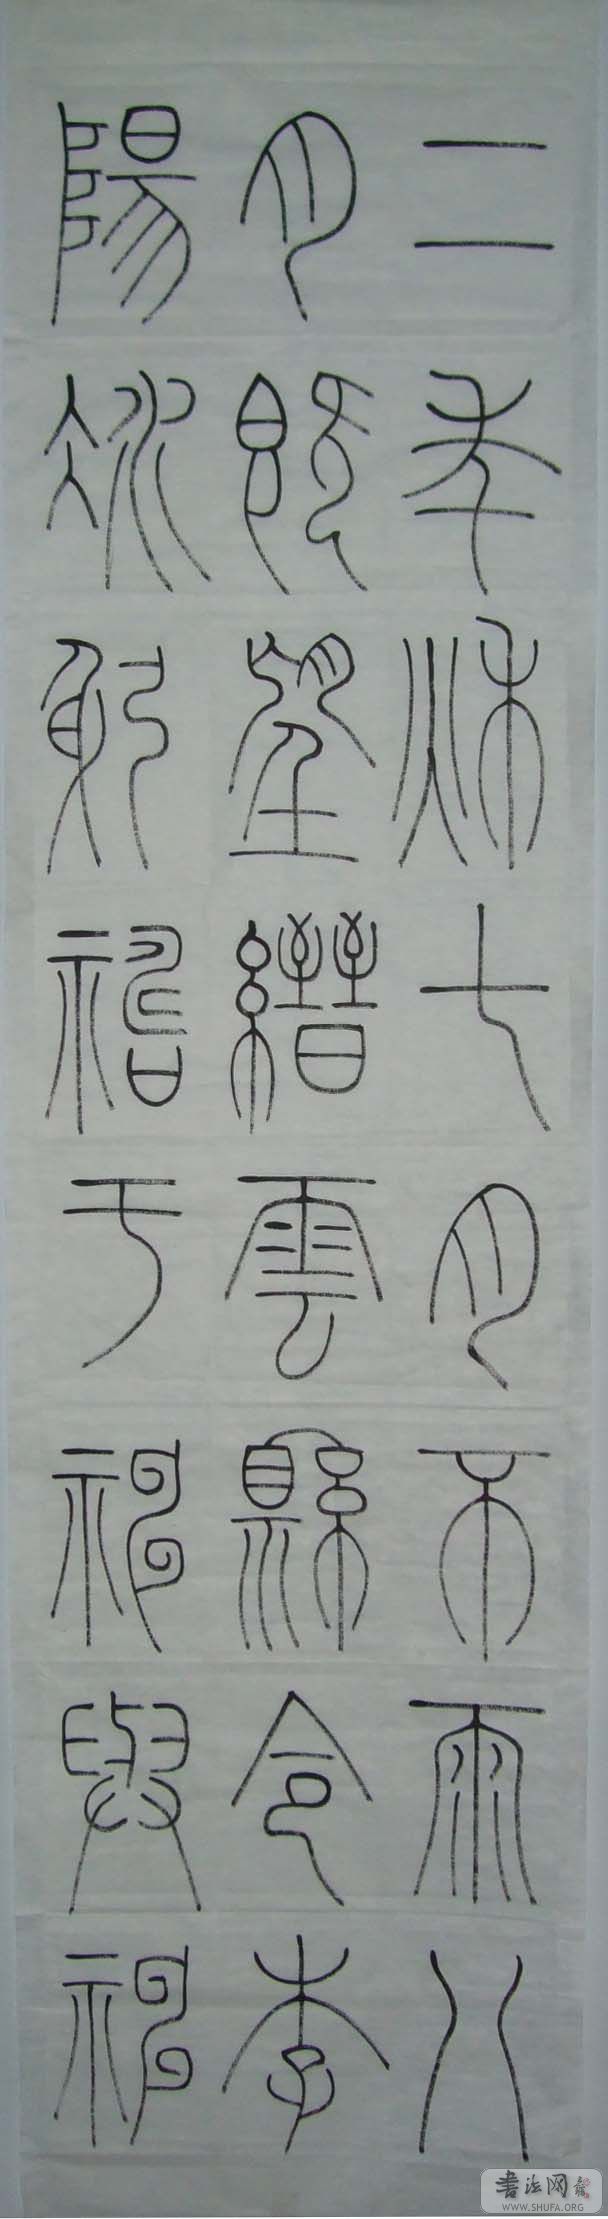 二年秋七月不雨八
月既望縉雲縣令李
陽冰躬禱于神與神
書法网
WWW.SHUFA.ORG